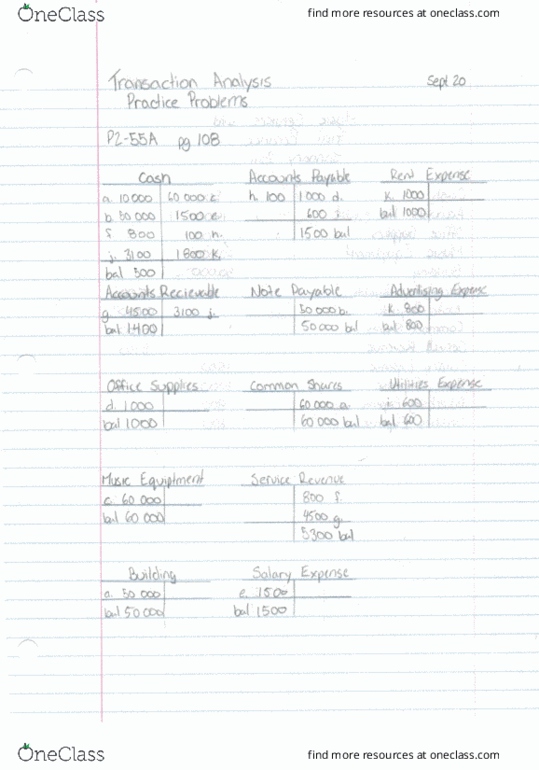 OneClass find more resources at oneclass.com
Transaction Analysis Sept 20
Practice Problems
P2-55A pg 108
Cash Accounts Payable Rent Expense
a. 10 000 60 000 c. h. 100 1000 d. k. 1000
b. 50 000 1500 e. 600 i. bal 1000
f. 800 100 h. 1500 bal
j. 3100 1800 k.
bal 500
Accounts Recievable Note Payable Advertising Expense
g. 4500 3100 j. 50 000 b. k. 800
bal 1400 50 000 bal bal 800
Office Supplies Common Shares Utilities Expense
d. 1000 60 000 a. i. 600
bal 1000 60 000 bal bal 600
Music Equiptment Service Revenue
c. 60 000 800 f.
bal 60 000 4500 g.
5300 bal
Building Salary Expense
a. 50 000 e. 1500
bal 50 000 bal 1500
OneClass find more resources at oneclass.com